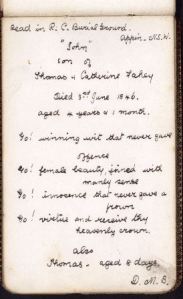 Read in R. C. Burial Ground.
Appin. N.S.W.
"John"
son of
Thomas & Catherine Fahey
Died 3rd June 1846.
aged 4 years & 1 month.
Go! winning wit that never gave
offence
Go! female beauty joined with
manly sense
Go! innocence that never gave a
frown
Go! virtue and receive thy
heavenly crown.
Also
Thomas - aged 8 days.
D. M. B.